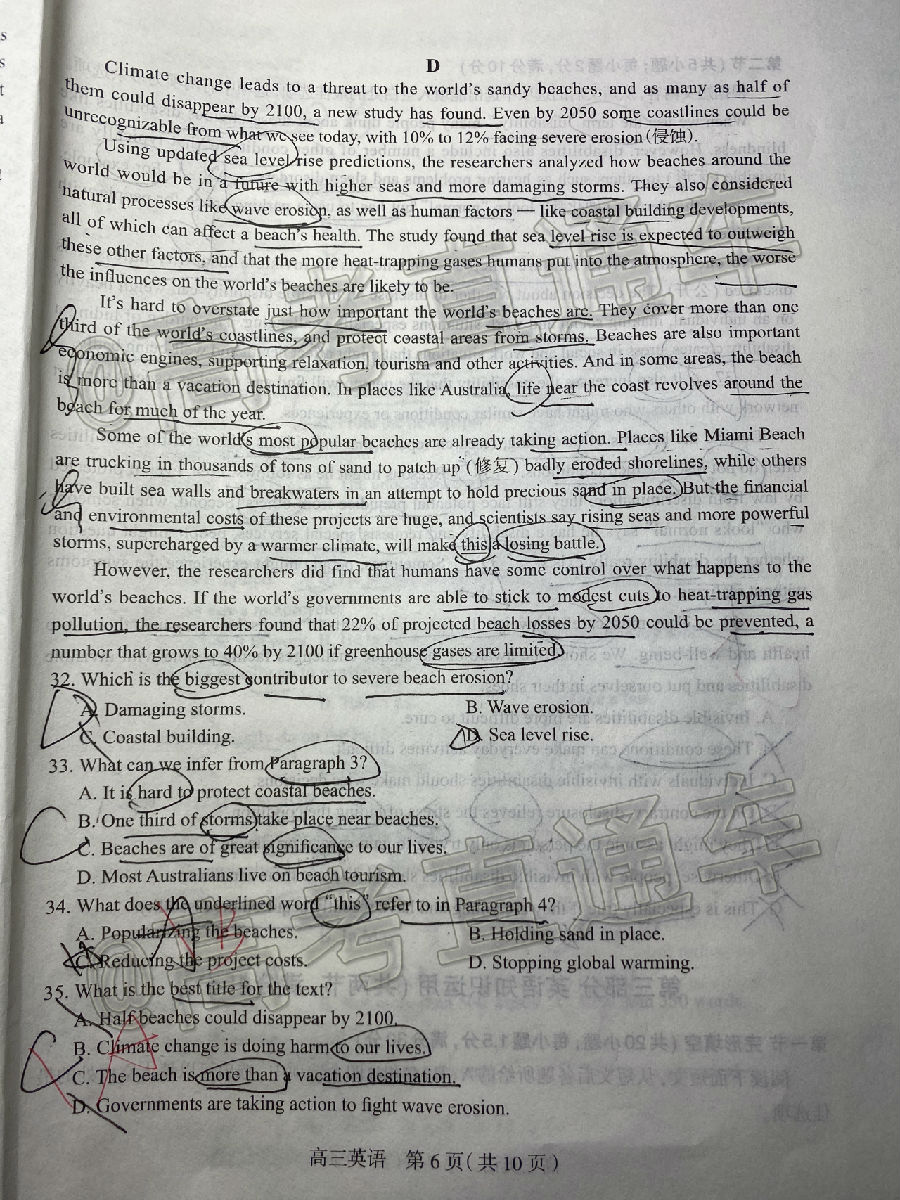 D
Climate change leads to a threat to the world's sandy beaches, and as many as half of
them could disappear by 2100, a new study has found. Even by 2050 some coastlines could be
unrecognizable from what we see today, with 10% to 12% facing severe erosion (侵蚀).
Using updated sea level rise predictions, the researchers analyzed how beaches around the
world would be in a future with higher seas and more damaging storms. They also considered
natural processes like wave erosion, as well as human factors — like coastal building developments,
all of which can affect a beach's health. The study found that sea level rise is expected to outweigh
these other factors, and that the more heat-trapping gases humans put into the atmosphere, the worse
the influences on the world's beaches are likely to be.
It's hard to overstate just how important the world's beaches are. They cover more than one
third of the world's coastlines, and protect coastal areas from storms. Beaches are also important
economic engines, supporting relaxation, tourism and other activities. And in some areas, the beach
is more than a vacation destination. In places like Australia, life near the coast revolves around the
beach for much of the year.
Some of the world's most popular beaches are already taking action. Places like Miami Beach
are trucking in thousands of tons of sand to patch up (修复) badly eroded shorelines, while others
have built sea walls and breakwaters in an attempt to hold precious sand in place. But the financial
and environmental costs of these projects are huge, and scientists say rising seas and more powerful
storms, supercharged by a warmer climate, will make this a losing battle.
However, the researchers did find that humans have some control over what happens to the
world's beaches. If the world's governments are able to stick to modest cuts to heat-trapping gas
pollution, the researchers found that 22% of projected beach losses by 2050 could be prevented, a
number that grows to 40% by 2100 if greenhouse gases are limited.
32. Which is the biggest contributor to severe beach erosion?
A. Damaging storms. B. Wave erosion.
C. Coastal building. D. Sea level rise.
33. What can we infer from Paragraph 3?
A. It is hard to protect coastal beaches.
B. One third of storms take place near beaches.
C. Beaches are of great significance to our lives.
D. Most Australians live on beach tourism.
34. What does the underlined word "this" refer to in Paragraph 4?
A. Popularizing the beaches. B. Holding sand in place.
C. Reducing the project costs. D. Stopping global warming.
35. What is the best title for the text?
A. Half beaches could disappear by 2100.
B. Climate change is doing harm to our lives.
C. The beach is more than a vacation destination.
D. Governments are taking action to fight wave erosion.
高三英语 第 6 页(共 10 页)
@高考直通车
@高考直通车